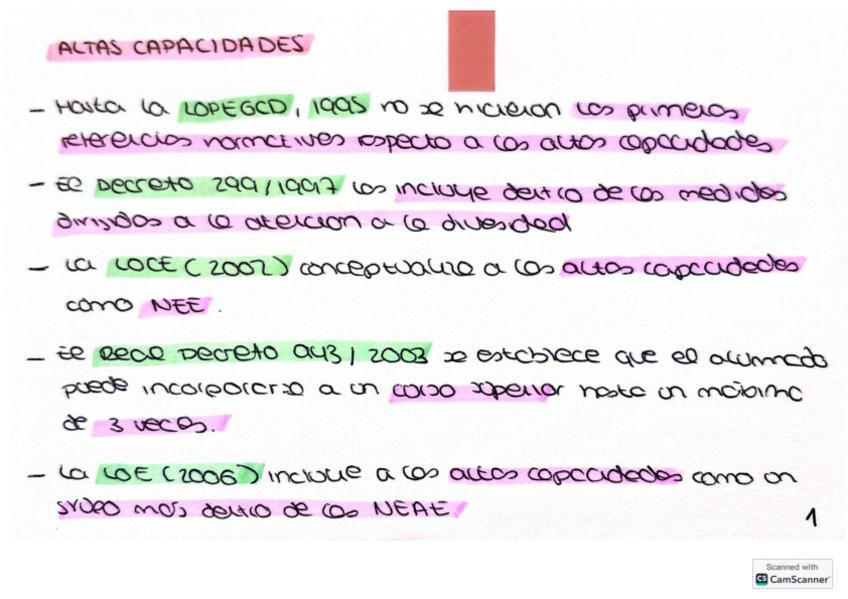 ALTAS CAPACIDADES
- Hasta la LOPEGCD, 1995 no se hicieron las primeras
referencias normativas respecto a las altas capacidades
- El Decreto 299/1997 las incluye dentro de las medidas
dirigidas a la atención a la diversidad
- La LOCE (2002) conceptualiza a las altas capacidades
como NEE.
- El Real Decreto 943/2003 se establece que el alumnado
puede incorporarse a un curso superior hasta un máximo
de 3 veces.
- La LOE (2006) incluye a las altas capacidades como un
grupo más dentro de las NEAE
1
Scanned with
CS CamScanner